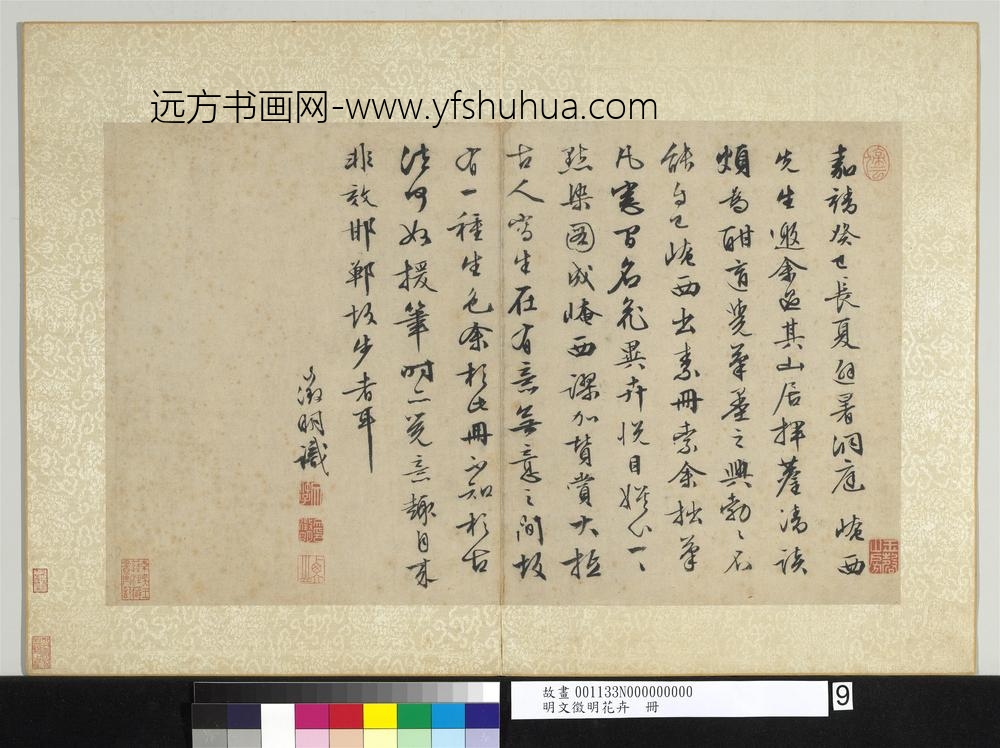 远方书画网-www.yfshuhua.com
嘉靖癸巳長夏避暑洞庭 崦西
先生邀余過其山居揮麈清談
頗為酣適覺筆墨之興勃〻不
能自已崦西出素冊索余拙筆
凡窓間名花異卉悅目娛心一〻
點染圖成崦西謬加贊賞大抵
古人寫生在有意無意之間故
有一種生色余於此冊不知於古
法何如援筆時亦覺意趣自來
非效邯鄲故步者耳
徵明識
故畫 001133N000000000
明文徵明花卉 冊
9